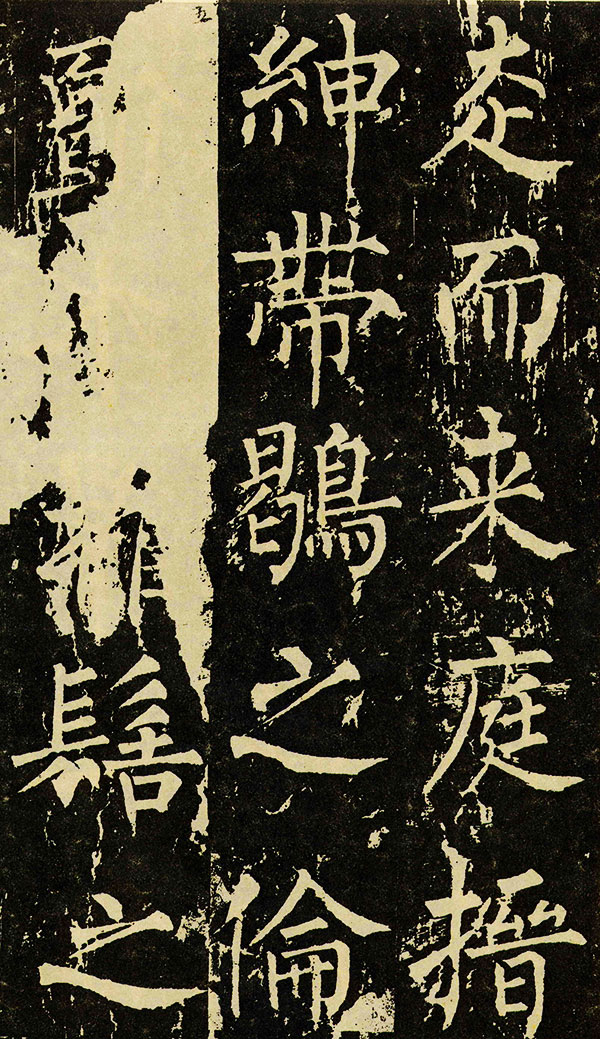 走而来庭搢
紳帶鶡之倫
髻之
五